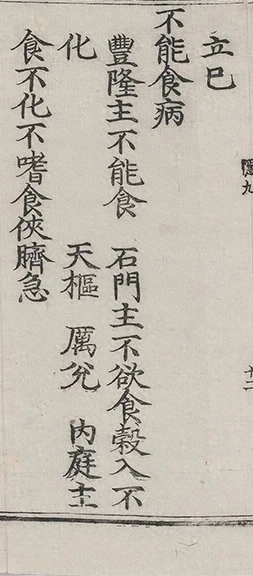 立已
不能食病
豐隆主不能食　石門主不欲食穀入不
化　天樞　厲兊　內庭主
食不化不嗜食俠臍急
九
十二